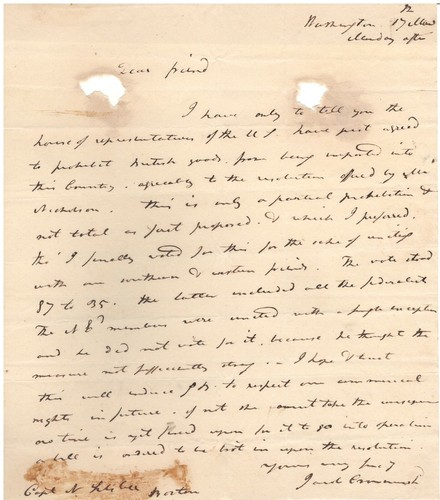 Washington 17 Mar
Monday after
Dear friend
I have only to tell you the
house of representatives of the U S. have just agreed
to prohibit British goods from being imported into
this Country, agreeably to the resolution offered by Mr
Nicholson. this is only a partial prohibition &
not total as first proposed. & which I preferred.
tho' I finally voted for this for the sake of uniting
with our southern & western friends. The vote stood
87 to 35. the latter included all the federalists
The members were united with a single exception
and he did not vote for it, because he thought the
measure not sufficiently strong. — I hope & trust
this will induce G B. to respect our commercial
rights in future. if not she must take the consequence
no time is yet fixed upon for it to go into operation
a bill is ordered to be brot in upon the resolution
Yours very
Jacob Crowninshield
Capt N Boston